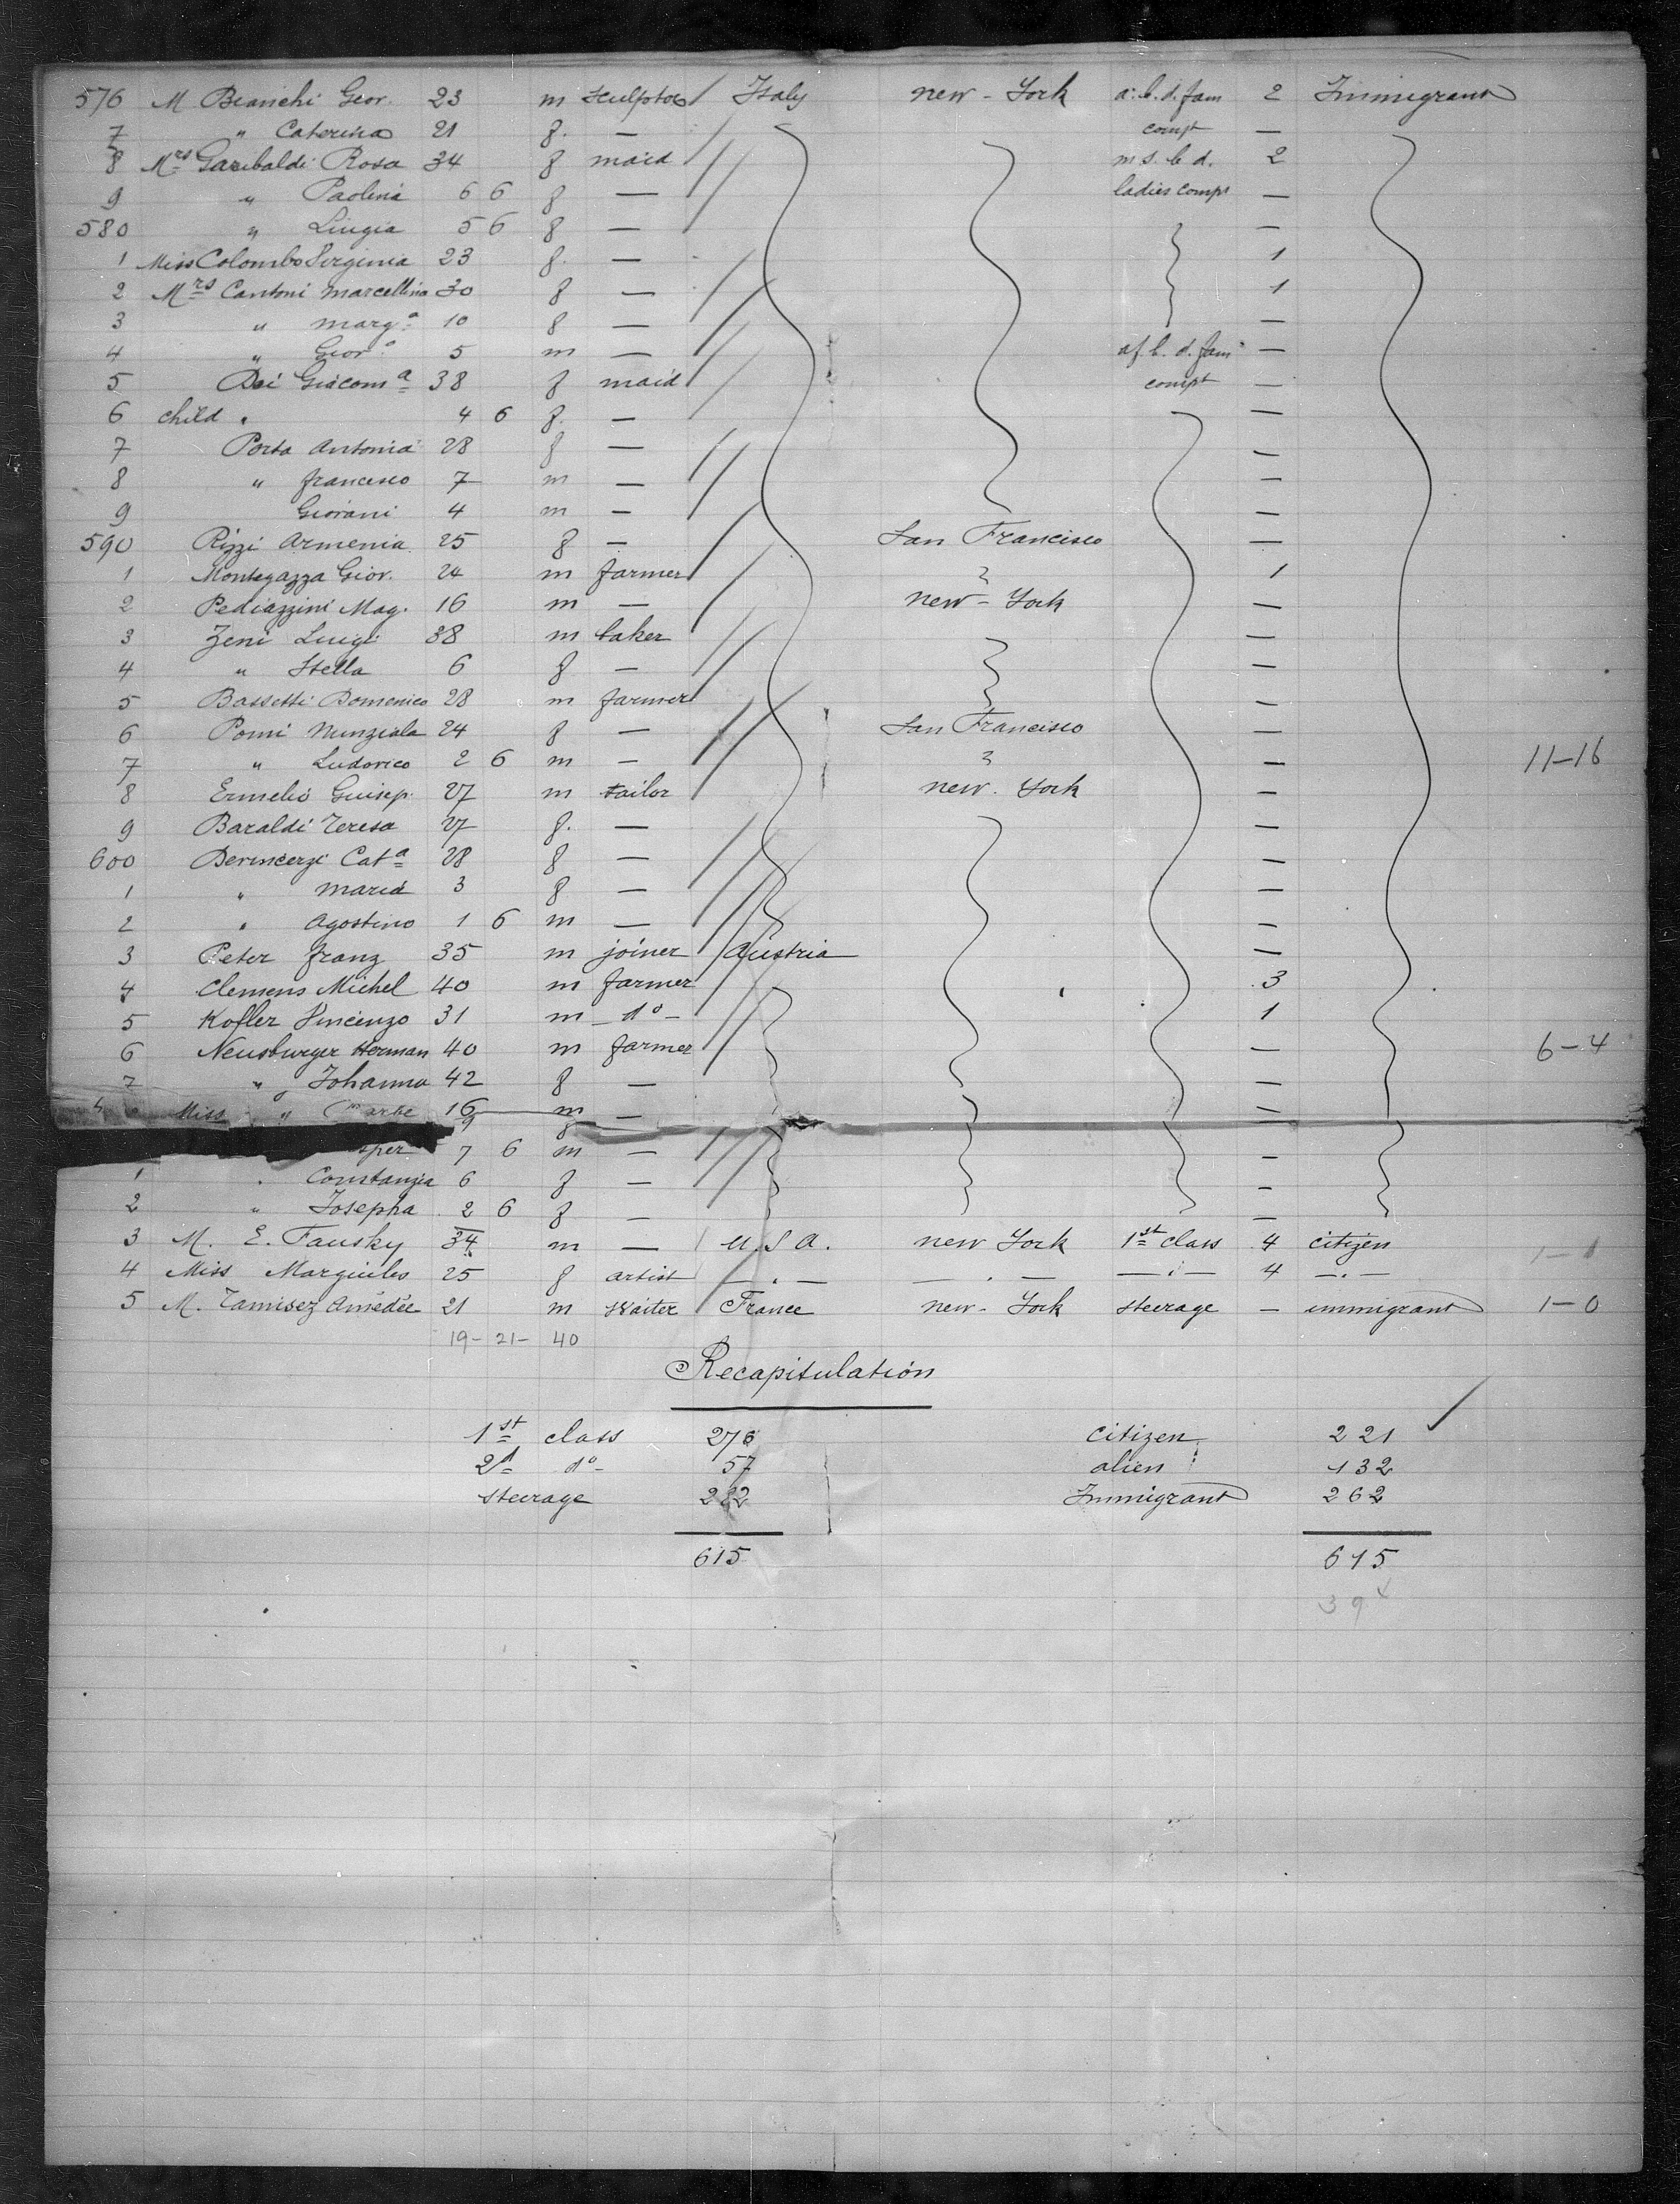 576 M Bianchi Geor. 23 m Sculptor Italy new-York a. b. d. fam 2 Immigrant
7 " Caterina 21 f. — compt —
8 Mrs Garibaldi Rosa 34 f maid m s. b d. 2
9 " Paolina 6 6 f — ladies compt —
580 " Liugia 5 6 f — —
1 Miss Colombo Virginia 23 f. — 1
2 Mrs Cantoni Marcellina 30 f — 1
3 " marg.a 10 f — —
4 " Gior.o 5 m — af. b. d. fam —
5 Dei Giacoma 38 f maid compt —
6 child " 4 6 f. — —
7 Porta Antonia 28 f — —
8 " francesco 7 m — —
9 Giovani 4 m — —
590 Rizzi Armenia 25 f — San Francisco —
1 Montegazza Giov. 24 m farmer " 1
2 Pediazzini Mag. 16 m — new-York —
3 Zeni Luigi 38 m baker —
4 " Stella 6 f — —
5 Bassetti Domenico 28 m farmer —
6 Pomi Nunziala 24 f — San Francisco —
7 " Ludovico 2 6 m — " — 11-16
8 Ermelio Guisep. 27 m tailor new. York —
9 Baraldi Teresa 27 f. — —
600 Berincerzi Cata 28 f — —
1 " maria 3 f — —
2 " Agostino 1 6 m — —
3 Peter franz 35 m joiner Austria —
4 Clemens Michel 40 m farmer 3
5 Kofler Vincenzo 31 m - do - 1
6 Neusburger Herman 40 m farmer — 6-4
7 " Johanna 42 f — —
Miss " 16 m — —
9 f
sper 7 6 m — —
1 " Constanzia 6 f — —
2 " Josepha 2 6 f — —
3 M. E. Fausky 34 m — U. S. A. new York 1st class 4 citizen
4 Miss Marguiles 25 f artist — " — — " — — " — 4 — " —
5 M. Tamisez Amédée 21 m Waiter France new-York steerage — immigrant 1-0
19- 21- 40
Recapitulation
1st class 276 citizen 221
2d do- 57 alien 132
steerage 282 Immigrant 262
615 615
39